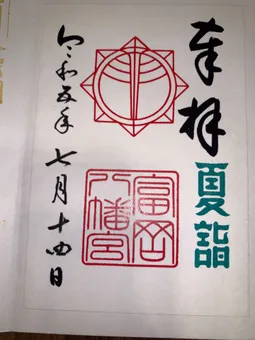 奉拝
夏詣
富岡
八幡宮
令和五年七月十四日